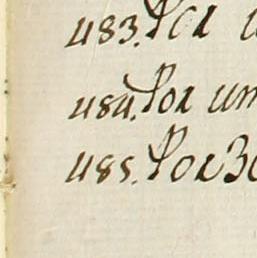 483. Por
484. Por um
485. Por 30